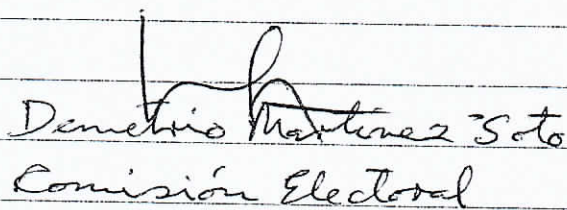 Demetrio Martínez Soto
Comisión Electoral